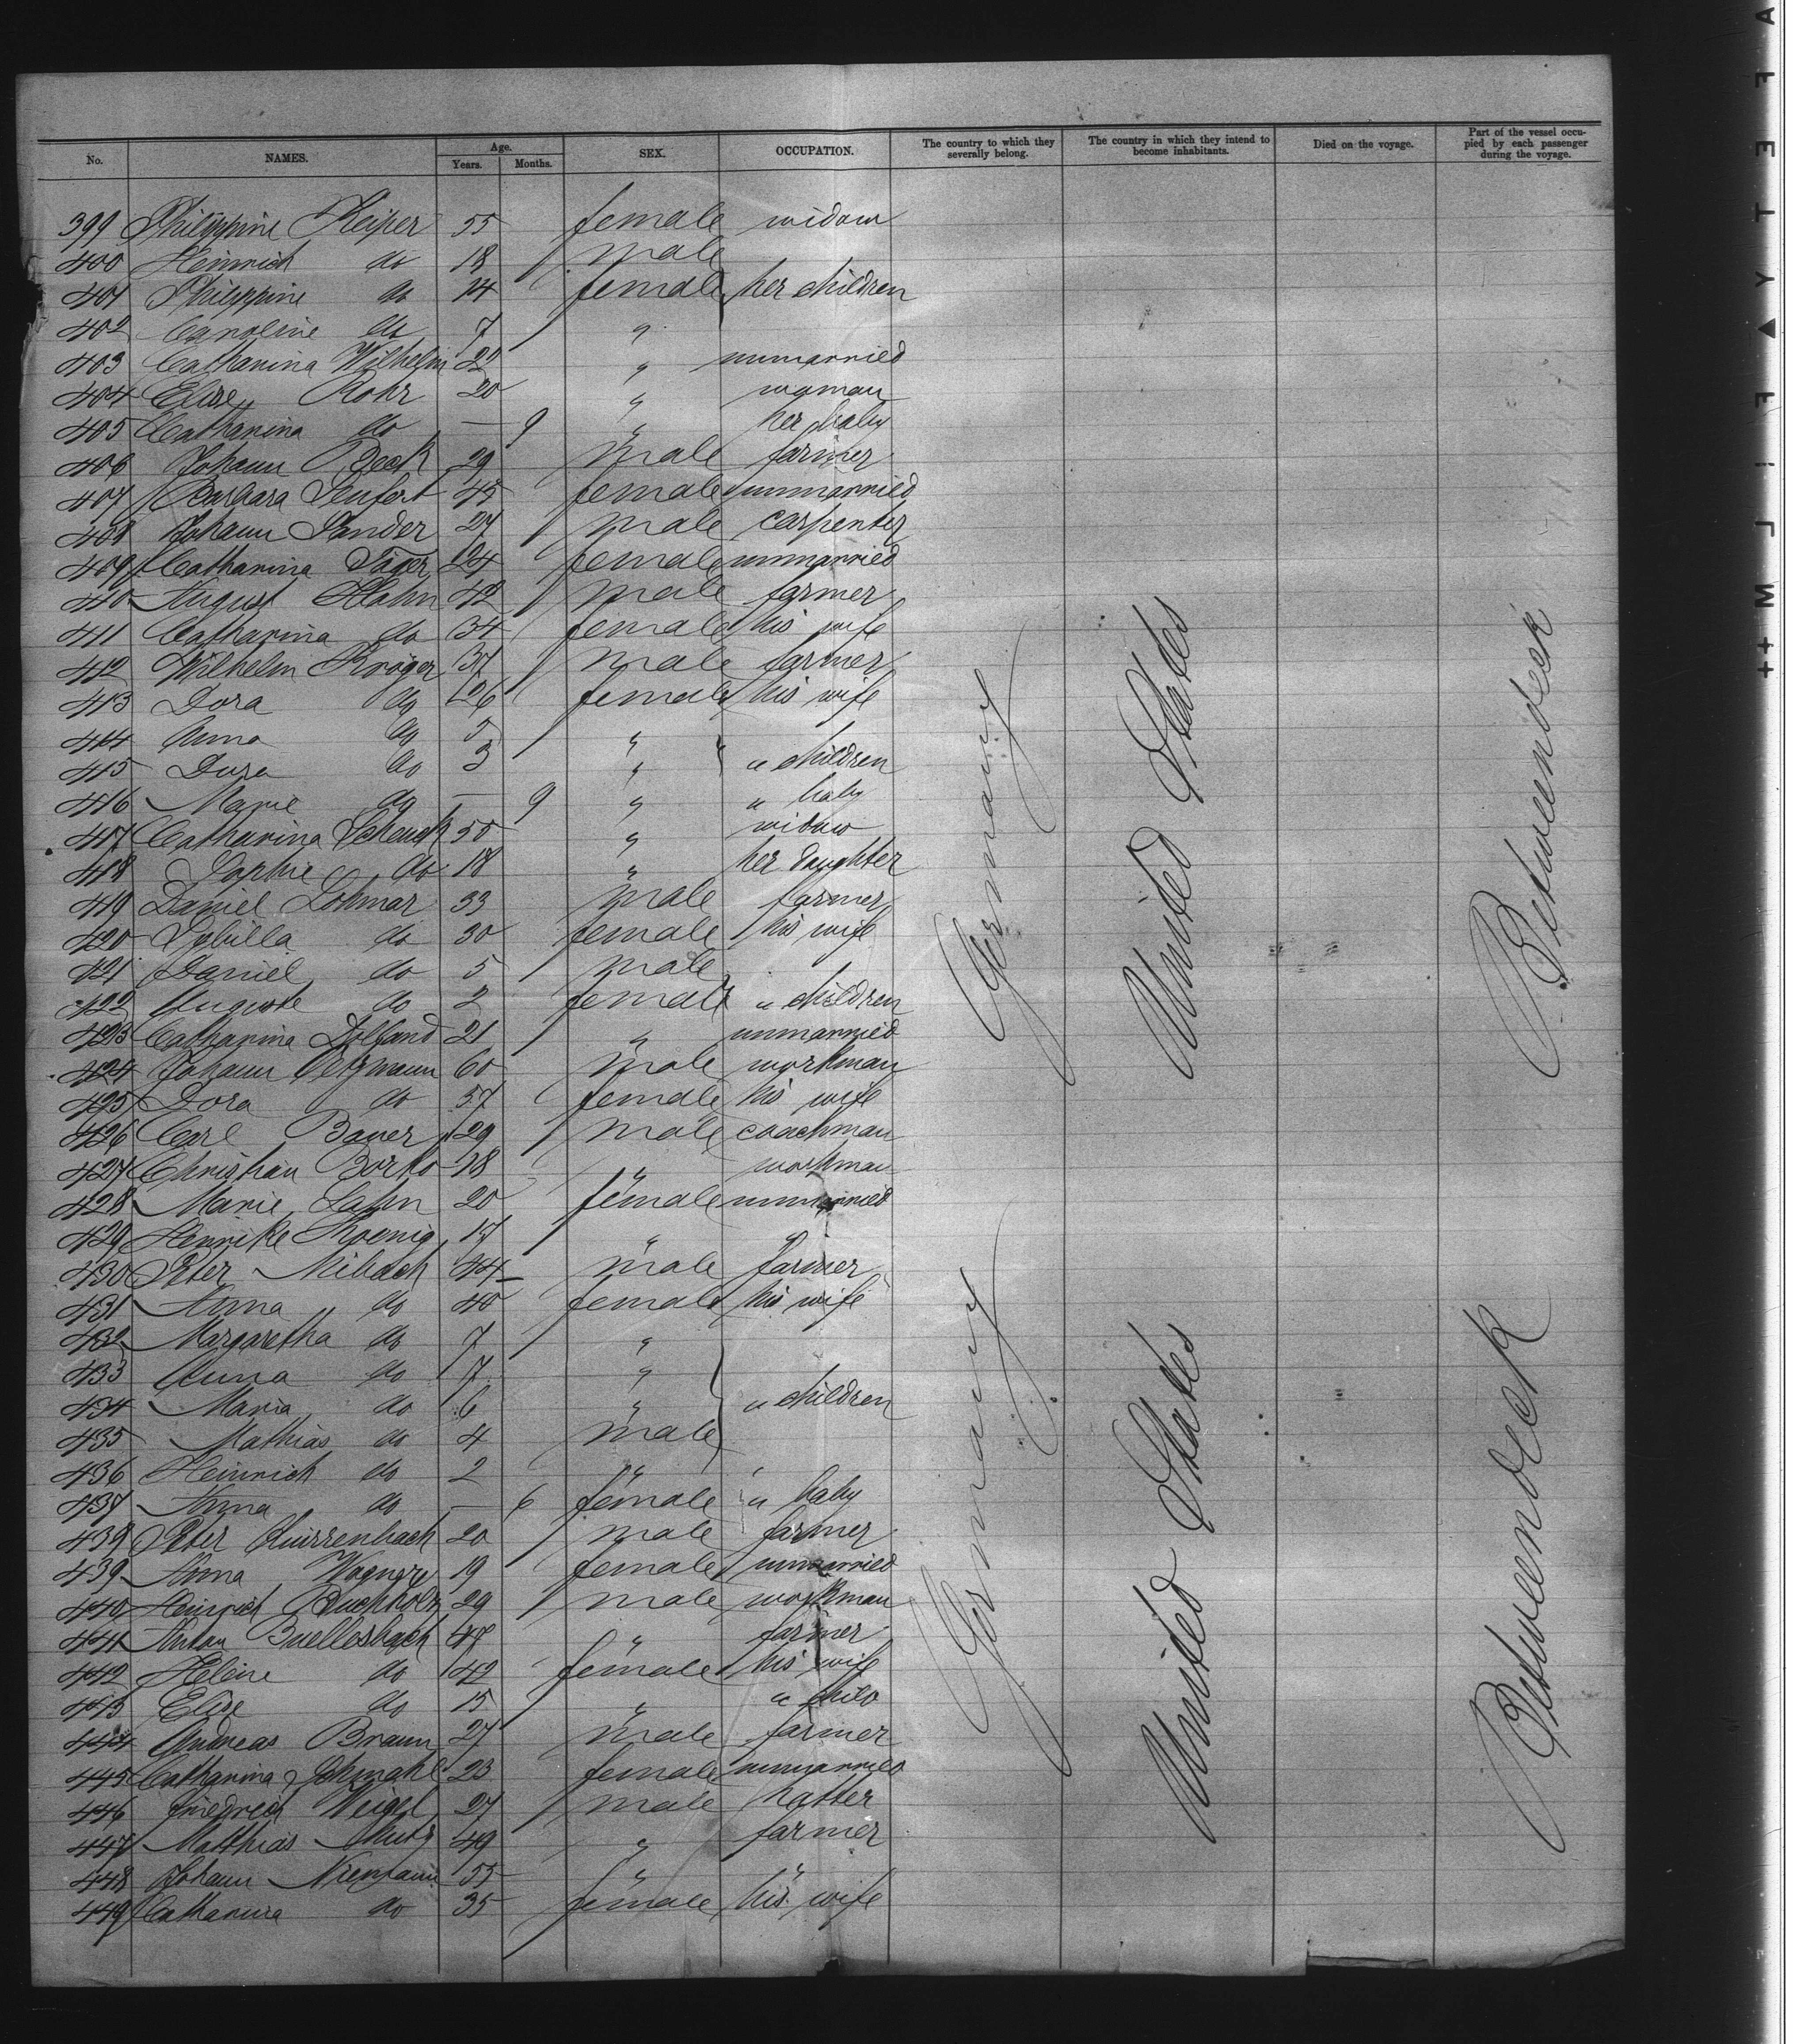 No. NAMES. Age. Years. Months. SEX. OCCUPATION. The country to which they severally belong. The country in which they intend to become inhabitants. Died on the voyage. Part of the vessel occupied by each passenger during the voyage.
399 Philippine Keiper 55 female widow
400 Heinrich do 18 male
401 Philippine do 14 female her children
402 Caroline do 7 "
403 Catharina Wilhelm 22 " unmarried
404 Elise Rohr 20 " woman
405 Catharina do — 9 " her baby
406 Johann Beck 29 male farmer
407 Barbara Seufert 45 female unmarried
408 Johann Sander 27 male carpenter
409 Catharina Jäger 24 female unmarried
410 August Hahn 42 male farmer
411 Catharina do 34 female his wife
412 Wilhelm Kröger 37 male farmer
413 Dora do 26 female his wife
414 Anna do 5 "
415 Dora do 3 " " children
416 Marie do — 9 " " baby
417 Catharina Schenck 50 " widow
418 Sophie do 18 " her daughter
419 Daniel Lohmar 33 male farmer
420 Sybilla do 30 female his wife
421 Daniel do 5 male
422 Auguste do 2 female " children
423 Catharina 21 " unmarried
424 Johann 60 male workman
425 Dora do 57 female his wife
426 Carl Bauer 29 male coachman
427 Christian 18 " workman
428 Marie Lahn 20 female unmarried
429 Henrike Koenig 17 " "
430 Peter Mibach 44 male farmer
431 Anna do 40 female his wife
432 Margaretha do 7 "
433 Anna do 7 "
434 Maria do 6 " " children
435 Mathias do 4 male
436 Heinrich do 2 "
437 Anna do — 6 female " baby
438 Peter Quirrenbach 20 male farmer
439 Anna Wagner 19 female unmarried
440 Heinrich Buchholz 29 male workman
441 Anton Buellesbach 47 " farmer
442 Helene do 42 female his wife
443 Elise do 15 " " child
444 Andreas Braun 27 male farmer
445 Catharina Schmahl 23 female unmarried
446 Friedrich Weigel 27 male hatter
447 Matthias 49 " farmer
448 Johann 55 " "
449 Catharina do 35 female his wife
Germany
United States
Betweendeck
Germany
United States
Betweendeck